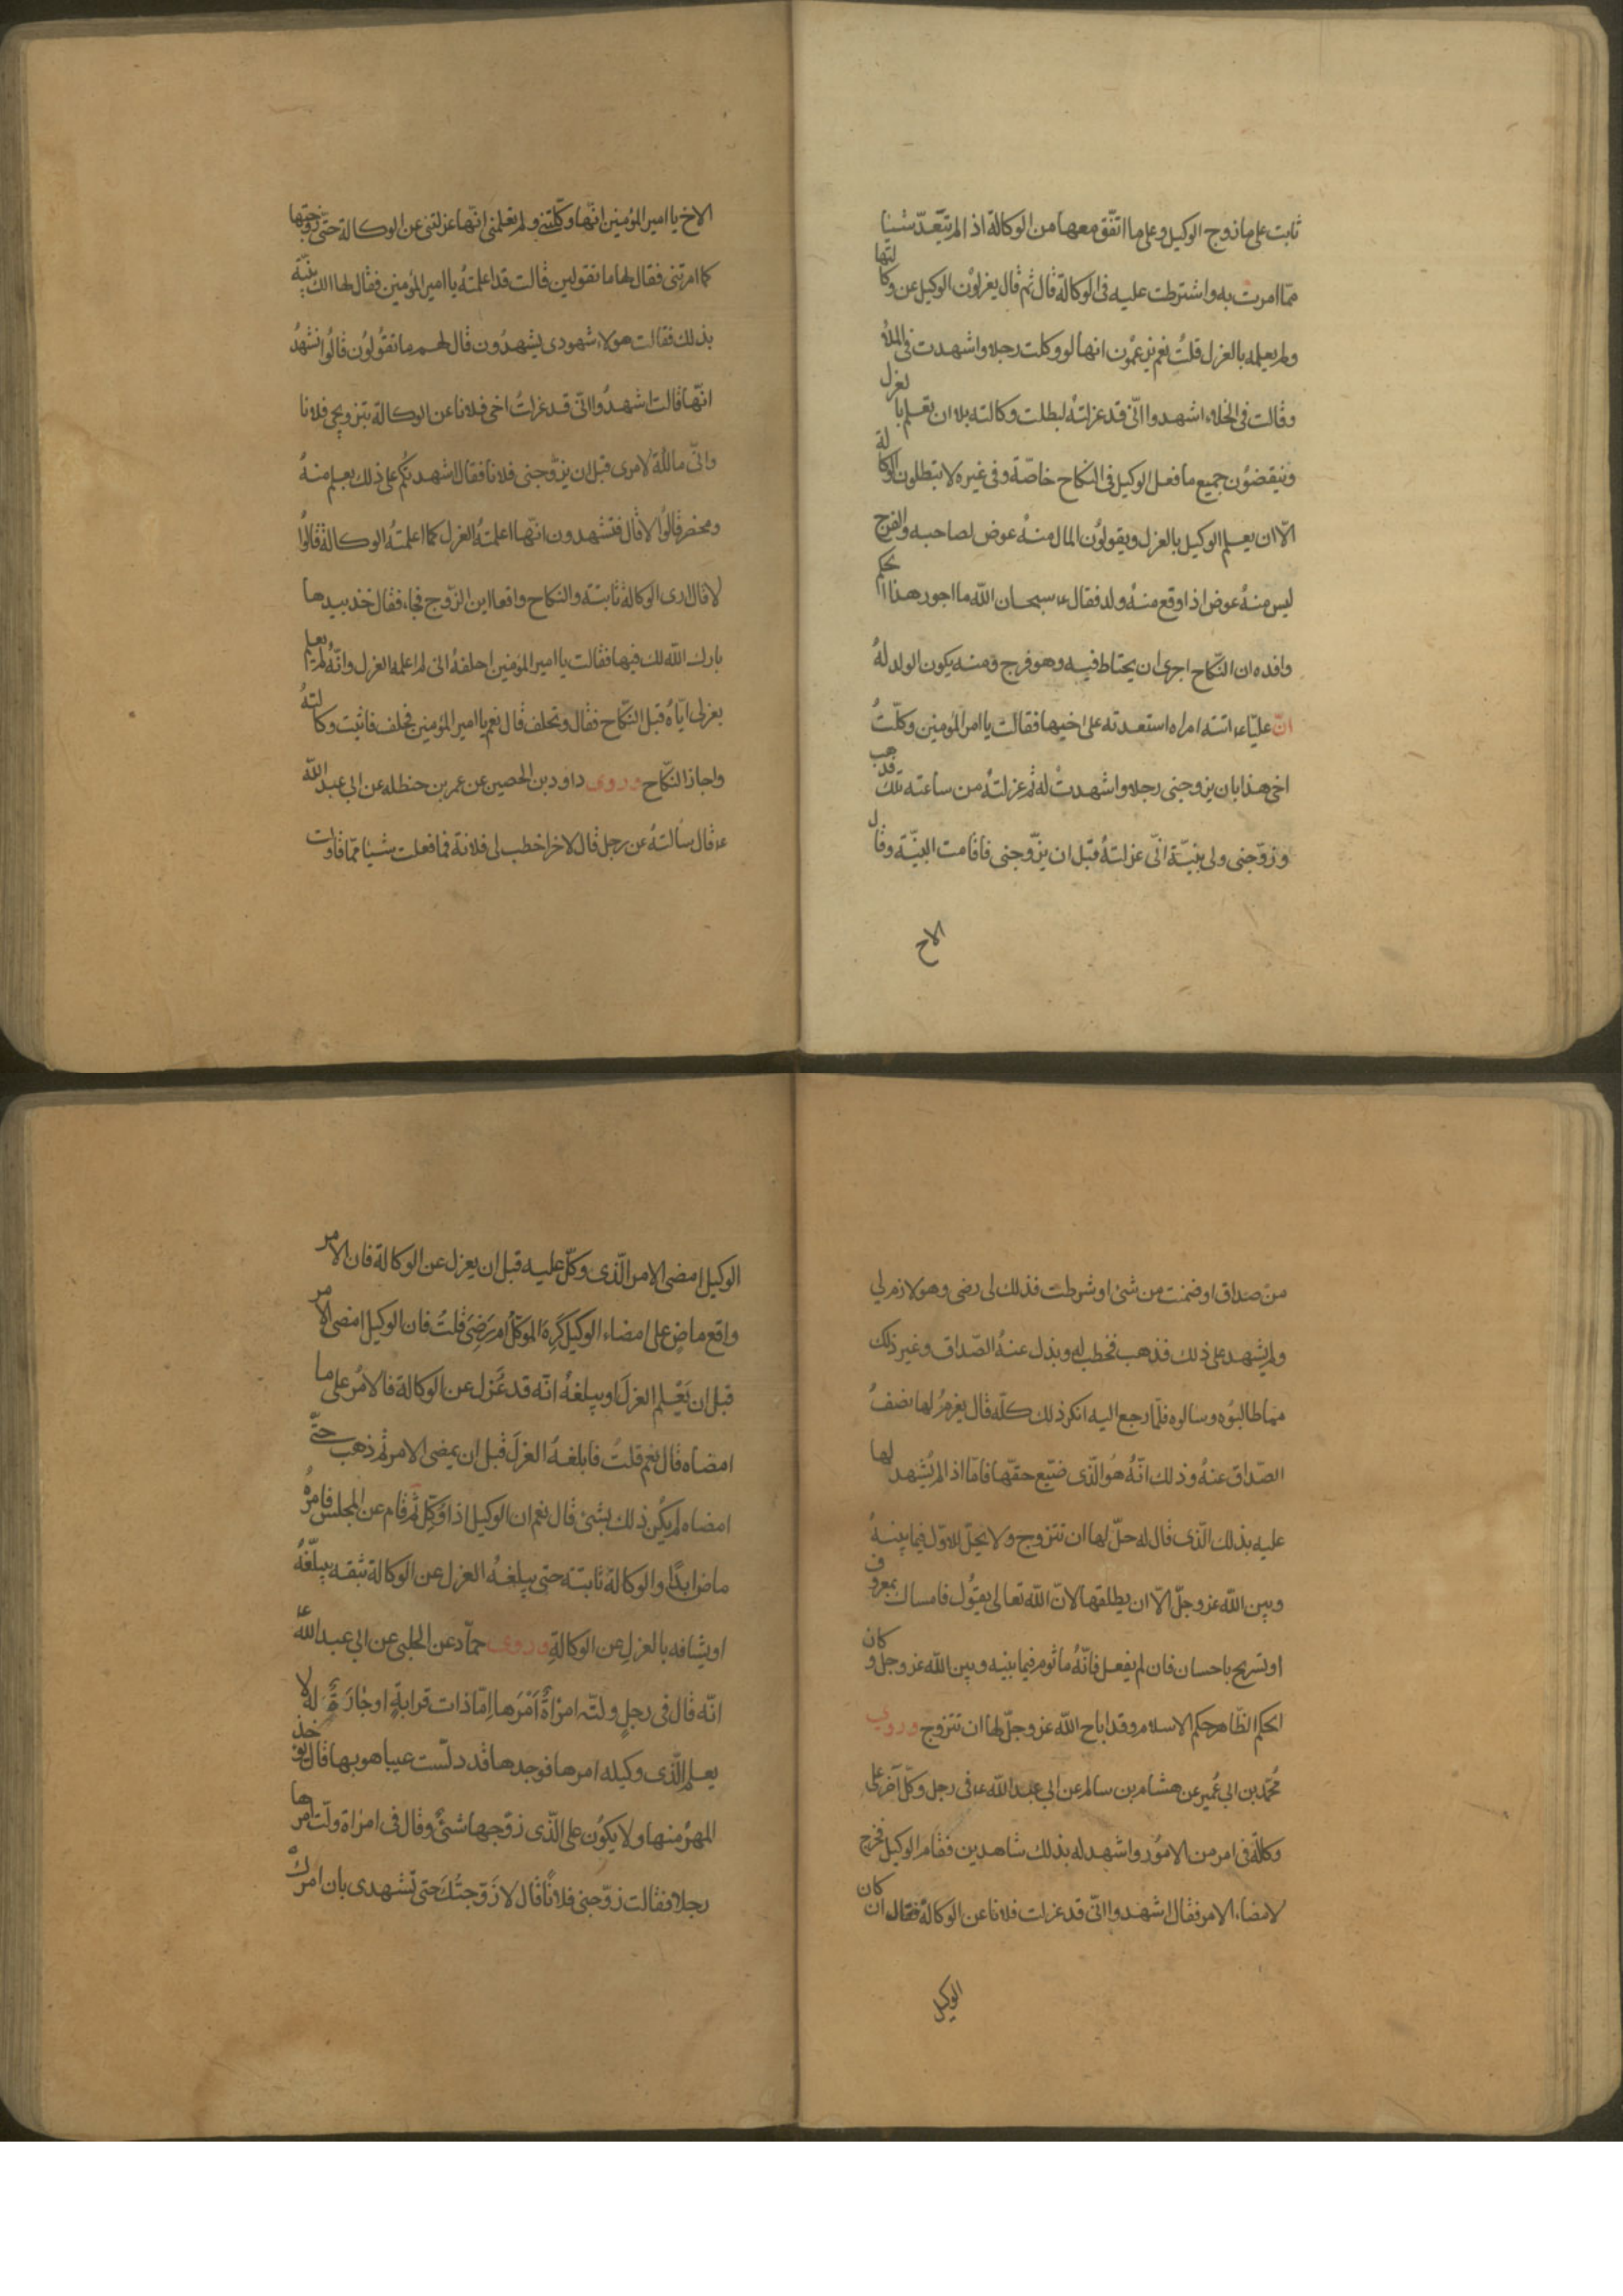 ثابت على ما زوج الوكيل وعلى ما اتّفق معها من الوكالة اذا لم يتعدّ شيئا
ممّا امرت به واشترطت عليه فى الوكالة قال ثم قال يعزلون الوكيل عن وكالتها
ولم يعلمه بالعزل قلتُ نعم يزعمون انها لو وكلت رجلا واشهدت فى الملأ
وقالت فى الخلاء اشهدوا انّى قد عزلتهُ لبطلت وكالته بلا ان تعلم بالعزل
وينقضون جميع ما فعل الوكيل فى النكاح خاصّة وفى غيره لا يبطلون الوكالة
الّا ان يعلم الوكيل بالعزل ويقولون المال منهُ عوض لصاحبه والفرج
ليس منهُ عوض اذا وقع منهُ ولد فقال ع سبحان الله ما اجور هذا الحكم
وافده ان النّكاح احرى ان يحتاط فيه وهو فرج ومنه يكون الولد لهُ
انّ عليّا ع اتته امراه استعدته على اخيها فقالت يا امير المؤمنين وكّلتُ
اخى هذا بان يزوجنى رجلا واشهدت له ثم عزلتهُ من ساعته تلك فذهب
وزوّجنى ولى بيّنة انّى عزلتهُ قبل ان يزوّجنى فاقامت البيّنة وقال
الاخ
الاخ يا امير المؤمنين انّها وكّلتنى ولم تعلمنى انّها عزلتنى عن الوكالة حتّى زوجتها
كما امرتنى فقال لها ما تقولين قالت قد اعلمتهُ يا امير المؤمنين فقال لها الك بيّنة
بذلك فقالت هؤلاء شهودى يشهدون قال لهم ما تقولون قالُوا نشهدُ
انّها قالت اشهدُوا انّى قد عزلتُ اخى فلانا عن الوكالة بتزويجى فلانا
وانّى مالكة لامرى قبل ان يزوّجنى فلانا فقال اشهدتكم على ذلك بعلم منهُ
ومحضر قالوا لا قال فتشهدون انّها اعلمتهُ العزل كما اعلمتهُ الوكالة قالُوا
لا قال ارى الوكالة ثابتة والنكاح واقعا اين الزّوج فجاء فقال خذ بيدها
بارك الله لك فيها فقالت يا امير المؤمنين احلفهُ انى لم اعلمه العزل وانّهُ لم يعلم
بعزلى ايّاهُ قبل النّكاح فقال وتحلف قال نعم يا امير المؤمنين فحلف فاثبت وكالتهُ
واجاز النّكاح وروى داود بن الحصين عن عمر بن حنظله عن ابى عبد الله
ع قال سألتهُ عن رجل قال لاخر اخطب لى فلانة فما فعلت شيئا ممّا قاولت
من صداق او ضمنت من شئ او شرطت فذلك لى رضى وهو لازم لي
ولم يشهد على ذلك فذهب فخطب له وبذل عنهُ الصّداق وغير ذلك
ممّا طالبُوه وسالوه فلمّا رجع اليه انكر ذلك كلّه قال يغرمُ لها نصفُ
الصّداق عنهُ وذلك انّهُ هُو الّذى ضيّع حقّها فامّا اذا لم يُشهد لها
عليه بذلك الّذى قال له حلّ لها ان تتزوج ولا يحلّ للاوّل فيما بينهُ
وبين الله عز وجلّ الّا ان يطلقها لانّ الله تعالى يقول فامساك بمعروف
او تسريح باحسان فان لم يفعل فانّهُ ماثوم فيما بينه وبين الله عز وجل وكان
الحكم الظّاهر حكم الاسلام وقد اباح الله عز وجلّ لها ان تتزوج وروى
مُحمّد بن ابى عُمير عن هشام بن سالم عن ابى عبد الله ع فى رجل وكّل آخر على
وكالة فى امر من الامُور واشهد له بذلك شاهدين فقام الوكيل فخرج
لامضاء الامر فقال اشهدوا انّى قد عزلت فلانا عن الوكالة فقال ان كان
الوكيل
الوكيل امضى الامر الّذى وكّل عليه قبل ان يعزل عن الوكالة فان الامر
واقع ماضٍ على امضاء الوكيل كَرِهَ الموكّلُ ام رَضِىَ قلتُ فان الوكيل امضى الامر
قبل ان يَعْلم العزلَ او يبلغهُ انّه قد عُزل عن الوكالة فالامرُ على ما
امضاه قال نعم قلتُ فابلغهُ العزلَ قبل ان يمضى الامر ثم ذهب حتّى
امضاه لم يكن ذلك بشئ قال نعم ان الوكيل اذا وُكّل ثم قام عن المجلس فامرُه
ماض ابدًا والوكالة ثابتة حتى يبلغهُ العزل عن الوكالة بثقه يبلّغُهُ
او يشافه بالعزلِ عن الوكالةِ وروى حمّاد عن الحلبى عن ابى عبد الله ع
انّه قال فى رجلٍ ولّته امرْاةٌ اَمْرَها امّا ذات قرابةٍ او جارَةً له لا
يعلم الّذى وكيله امرها فوجدها قد دلّست عيبا هو بها قال يؤخذ
المهرُ منها ولا يكون على الّذى زوّجها شئٌ وقال فى امراة ولّت امرها
رجلا فقالت زوّجنى فلانًا قال لا زَوّجتُكَ حتى تشهدى بان امرك